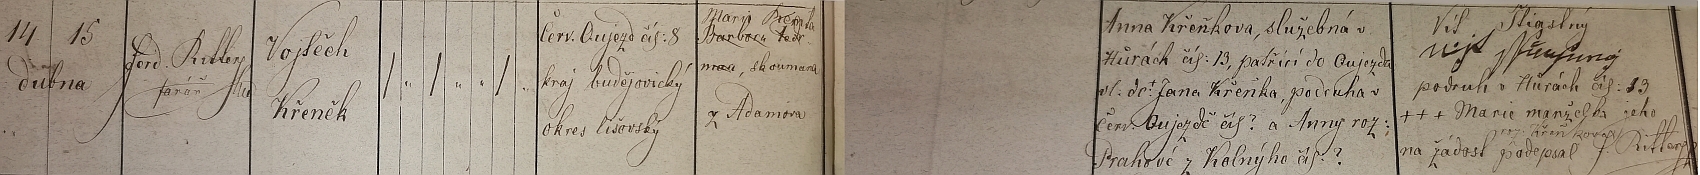 14 15
dubna
Ferd. Ritter
farář
Vojtěch
Křeněk
Červ. Oujezd čís: 8
kraj budějovický
okres lišovský
Marie
Barbora
zkoumaná
z Adamova
Anna Křeňkova, služebná v
Hůrách čís: 13, patřící do Oujezda
vl. dct Jana Křeňka, podruha v
Červ. Oujezdě čís? a Anny roz:
Prahové z Kolnýho čís:?
Vít Štiastný
podruh v Hůrách čís: 13
+++ Marie manželka jeho
roz. Křeňkova
na žádost podepsal F. Ritter